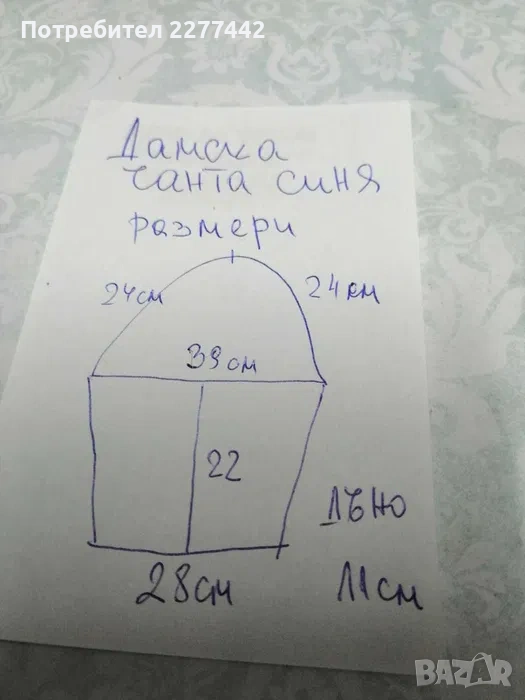 Потребител 2277442
Дамска
чанта синя
размери
24см
24см
39см
22
Дъно
28см
11см
BAZAR